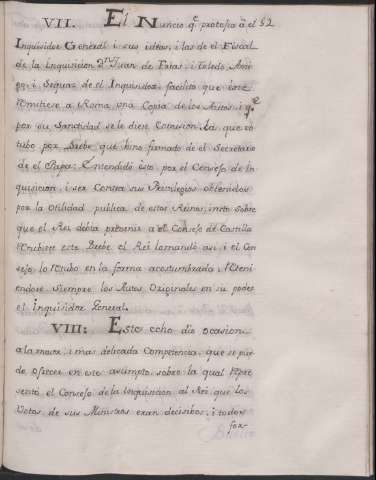 52
VII. El Nuncio q.e protegia â el
Inquisidor General i sus vistas, i las de el Fiscal
de la Inquisicion D.n Juan de Faias, i Toledo, Ami
go, i Sequaz de el Inquisidor, facilitò que èste
remitiese a Roma una Copia de los Autos, i q.e
por su Santidad se le diese Comision; La que ob
tubo por Brebe que bino firmado de el Secretario
de el Papa: Entendido esto por el Consejo de In
quisicion, i ser Contra sus Privilegios obtenidos
por la Utilidad publica de estos Reinos, instò sobre
que el Rei debia prevenir a el Consejo de Castilla
retubiese este Brebe, el Rei lo mandò asi, i el Con
sejo lo retubo en la forma acostumbrada, reteni
endose siempre los Autos Originales en su poder
el Inquisidor General.
VIII: Este echo dio ocasion
a la maior, i mas delicada Competencia, que se pu
do ofrecer en este asumpto, sobre la qual repre
sentò el Consejo de la Inquisicion al Rei que los
Votos de sus Ministros eran decisibos, i todos
for-